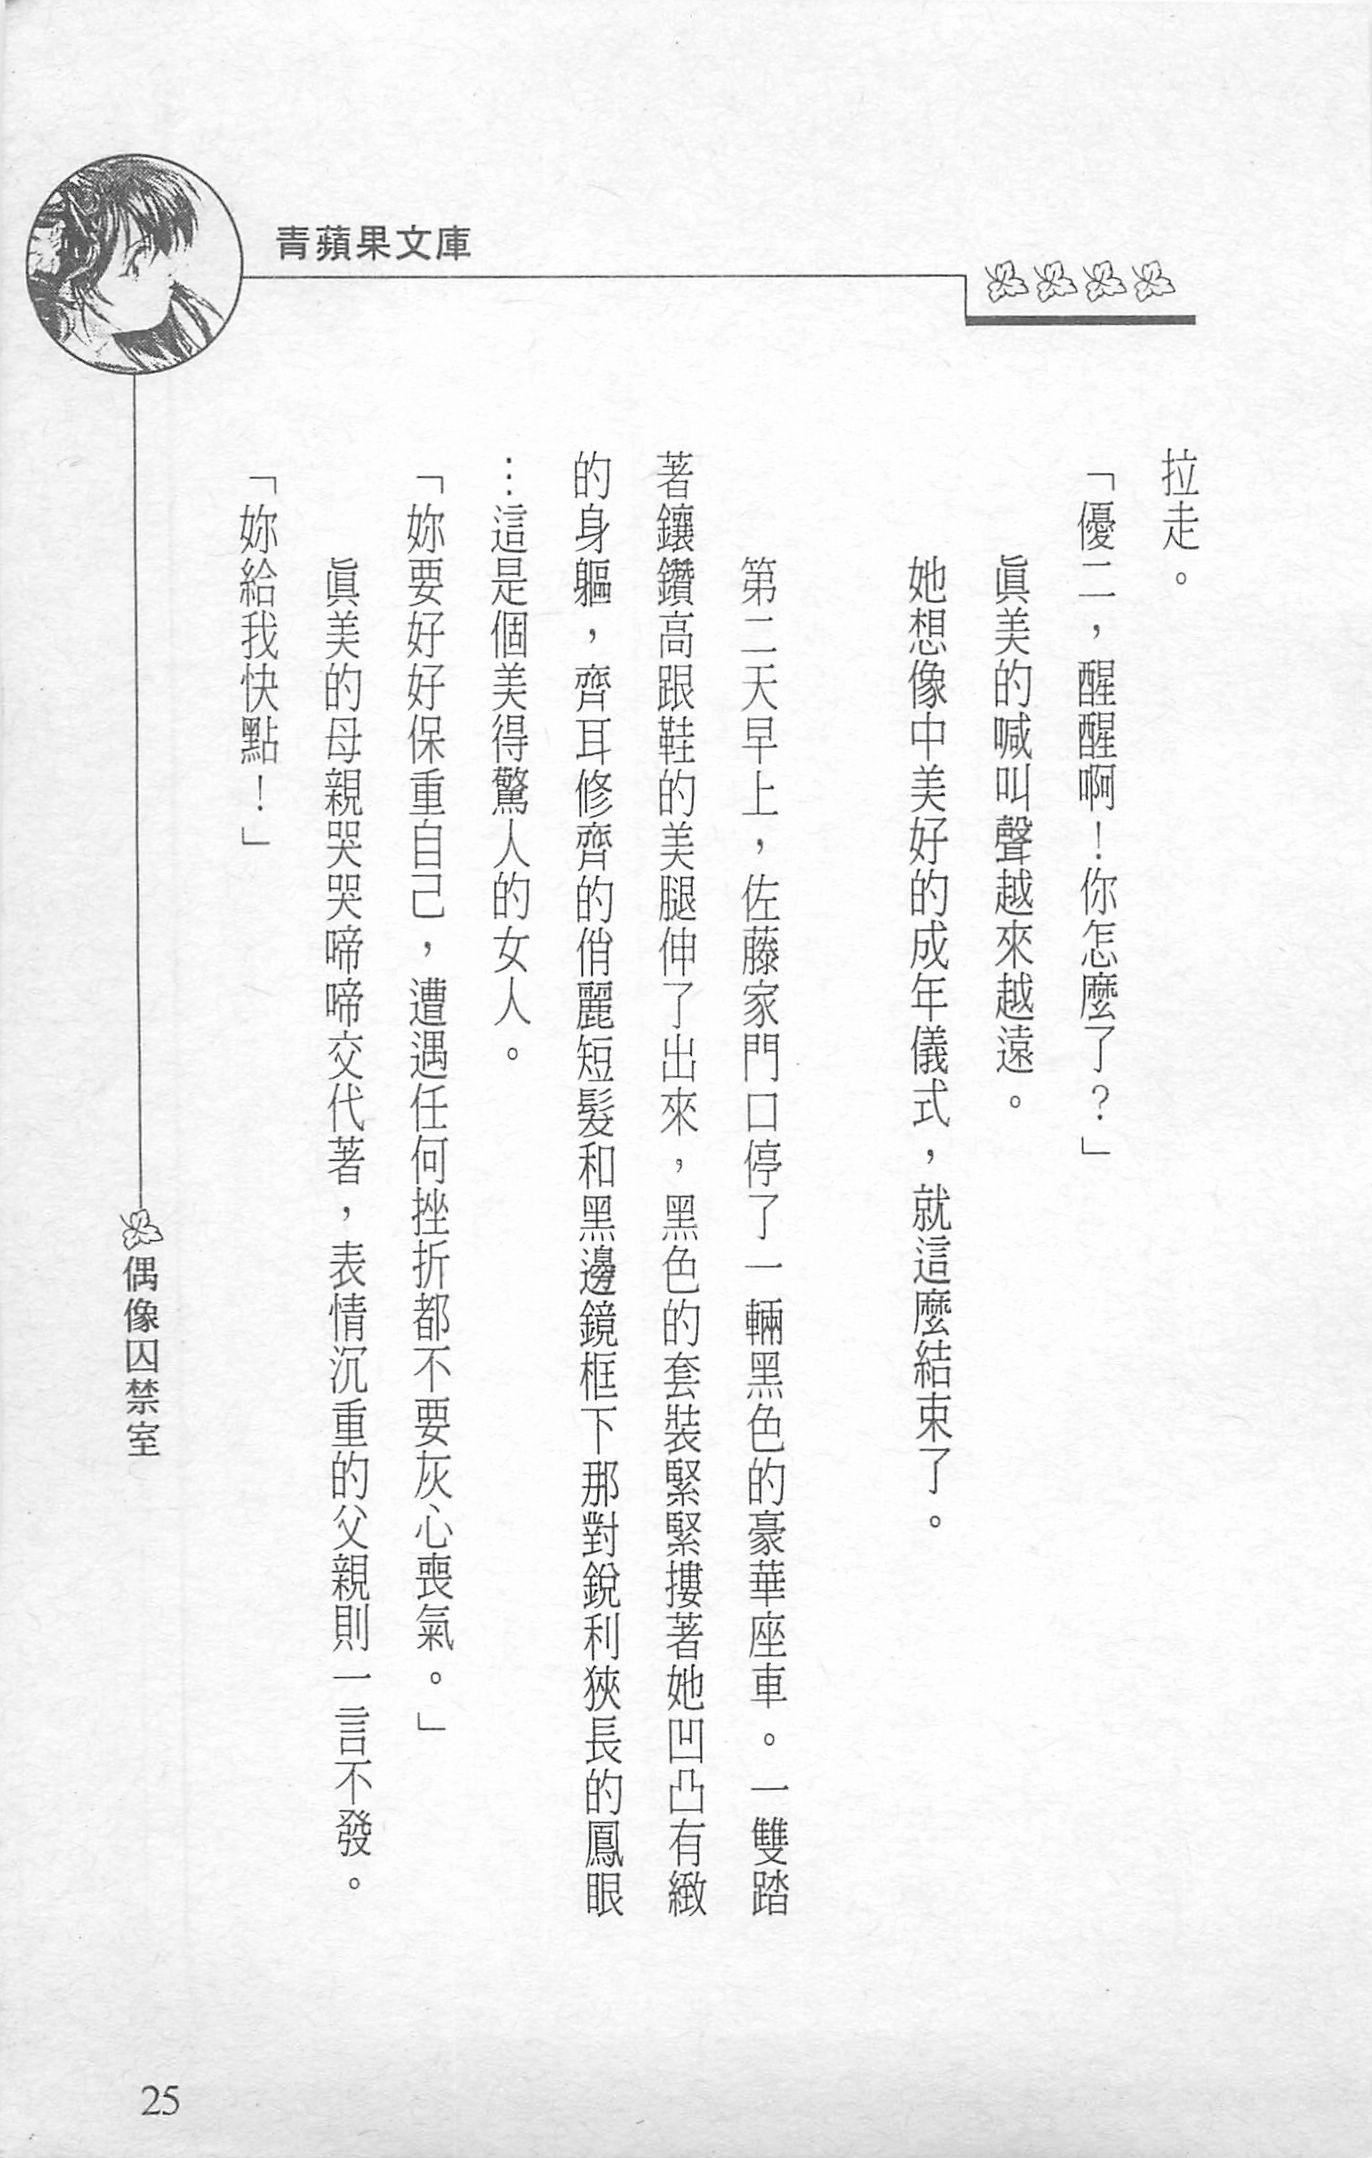 青蘋果文庫
拉走。
「優二，醒醒啊！你怎麼了？」
眞美的喊叫聲越來越遠。
她想像中美好的成年儀式，就這麼結束了。
第二天早上，佐藤家門口停了一輛黑色的豪華座車。一雙踏
著鑲鑽高跟鞋的美腿伸了出來，黑色的套裝緊緊摟著她凹凸有緻
的身軀，齊耳修齊的俏麗短髮和黑邊鏡框下那對銳利狹長的鳳眼
…這是個美得驚人的女人。
「妳要好好保重自己，遭遇任何挫折都不要灰心喪氣。」
眞美的母親哭哭啼啼交代著，表情沉重的父親則一言不發。
「妳給我快點！」
偶像囚禁室
25